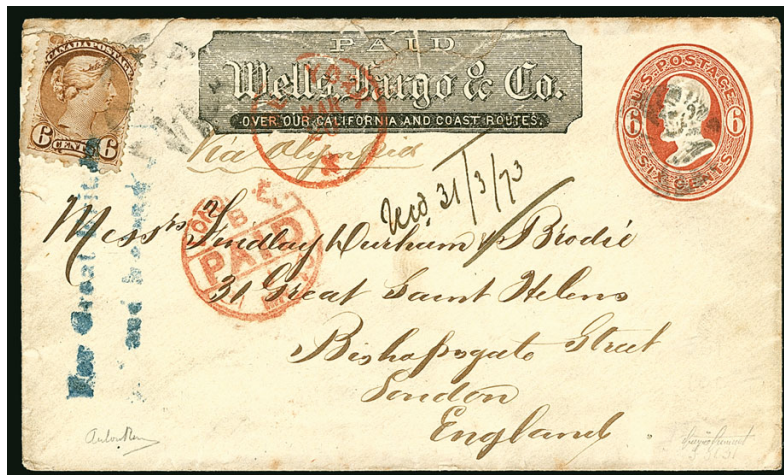 CANADA POSTAGE
6 CENTS 6
PAID
Wells, Fargo & Co.
OVER OUR CALIFORNIA AND COAST ROUTES.
U.S. POSTAGE
6 6
SIX CENTS
Via Olympia
31/3/73
PAID
Messrs Findlay Durham & Brodie
31 Great Saint Helens
Bishopsgate Street
London
England
Great
and